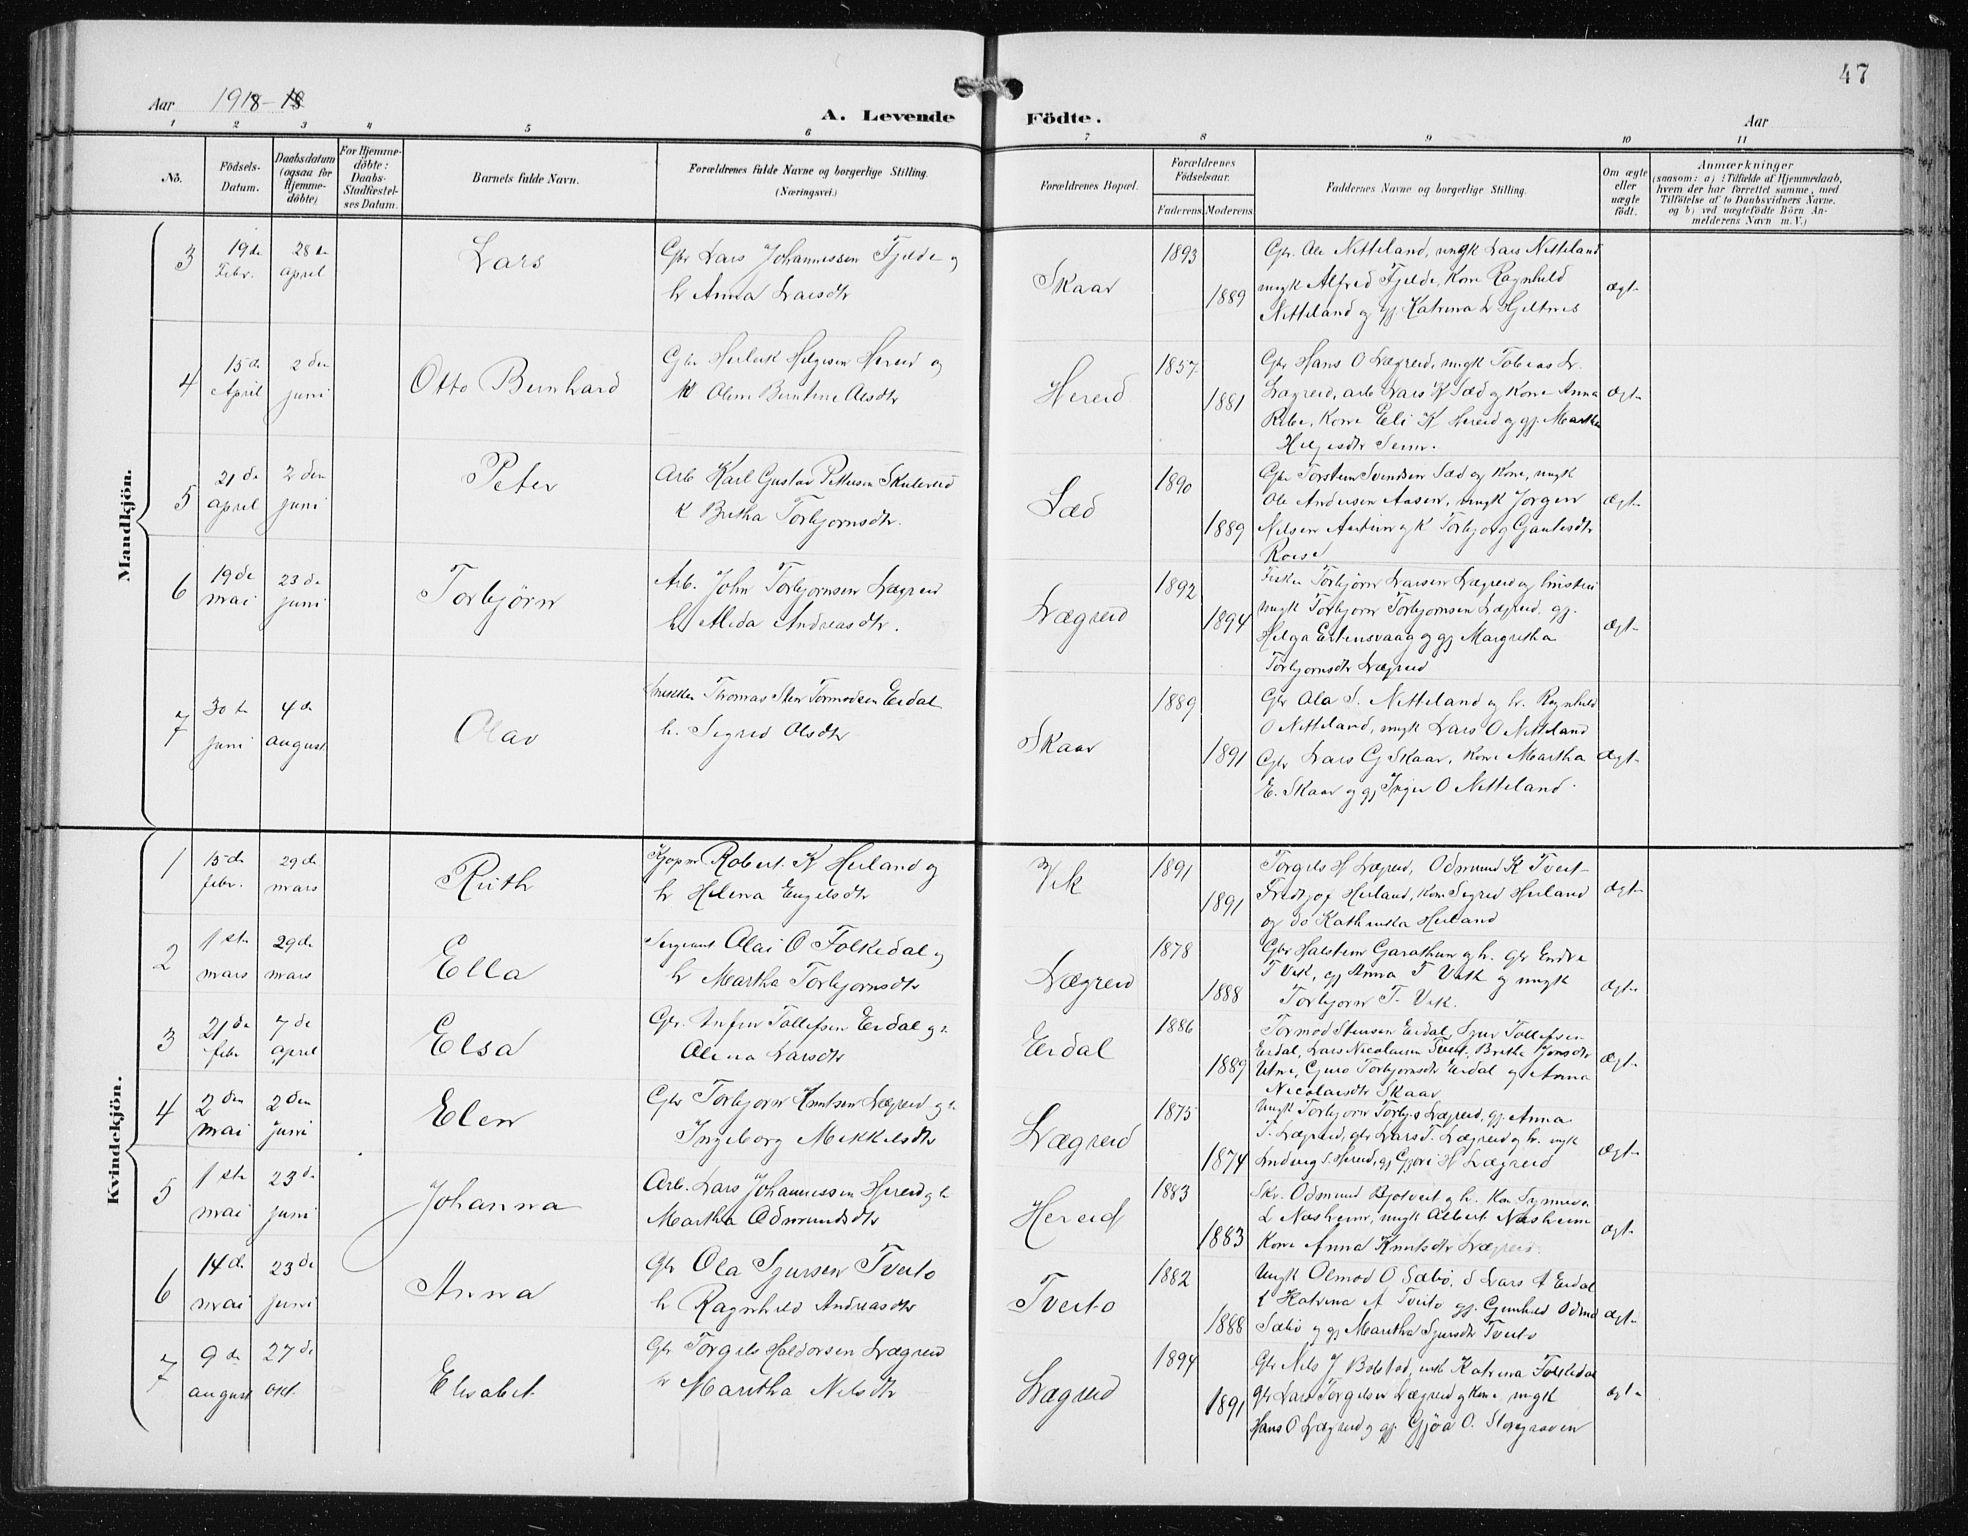 47
Aar 1918-18
A. Levende Födte.
Aar
1 2 3 4 5 6 7 8 9 10 11
No.
Födsels-Datum.
Daabsdatum (ogsaa for Hjemme-döbte)
For Hjemme-döbte: Daabs-Stadfæstel-ses Datum.
Barnets fulde Navn.
Forældrenes fulde Navne og borgerlige Stilling. (Næringsvei.)
Forældrenes Bopæl.
Forældrenes Födselsaar.
Faderens Moderens
Faddernes Navne og borgerlige Stilling.
Om ægte eller uægte födt.
Anmærkninger
(saasom: a) i Tilfælde af Hjemmedaab, hvem der har forrettet samme, med Tilföielse af to Daabsvidners Navne. og b) ved uægtefödte Börn An-melderens Navn m. V.)
Mandkjön.
3 19de Febr. 28de april Lars
Gbr Lars Johannessen Fjelde og
h Anna Larsdtr
Skaar 1893 1889
Gbr. Ole Nitteland, ungk Lars Nitteland
ungk Alfred Fjelde, Kone Ragnhild
Nitteland og gj Katrina L Hjeltnes
ægt-
4 15de April 2den juni Otto Bernhard
Gbr Helgesen Hereid og
Bertine Olsdtr
Hereid 1857 1881
Gbr Hans O Lægreid, ungk Tobias L.
Lægreid, arb Lars K Sæd og Kone Anna
Kone Eli K Hereid og gj. Martha
Helgesdtr
Ægt-
5 21de april 2den juni Peter
Arb Karl Gustav Pettersen
K Britha Torbjornsdtr.
Sæd 1890 1889
Gbr Torstein Svendsen Sæd og Kone, ungk
Ole Andersen Aasen, ungk Jørgen
Nilsen og K Torbjorg Gautesdtr
Ægt-
6 19de mai 23de juni Torbjörn
Arb. John Torbjornsen Lægreid
h Alida Andreasdtr.
Lægreid 1892 1894
Fisker Torbjørn Larsen Lægreid og
ungk Torbjorn Torbjornsen Lægreid, gj.
Helga og gj Margretha
Torbjornsdtr Lægreid
Ægt-
7 30te juni 4de august Olav
Snekker Thomas Sten Tormodsen Eidal
h. Sigrid Olsdtr
Skaar 1889 1891
Gbr Ola S. Nitteland og h. Ragnhild
O Nitteland, ungk Lars O Nitteland
Gbr Lars G Skaar, Kone Martha
E. Skaar og gj Inger O Nitteland.
Ægt-
Kvindekjön.
1 15de febr. 29de mars Ruth
Kjøpm Robert K Heiland og
h Helena Engelsdtr
Vik 1891 1891
Torgils H Lægreid, Odmund K Tveit
Fredtjof Heiland, Kone Sigrid Heiland
og do Kathinka Heiland
Ægt-
2 1ste mars 29de mars Ella
Sergeant Olai O Folkedal og
h Martha Torbjornsdtr
Lægreid 1878 1888
Gbr Halstein Garathun og h. gbr Endre
T Vik, gj Anna T Vik og ungk
Torbjorn T. Vik.
Ægt-
3 21de febr 7de april Elsa
Gbr. Tollefsen Eidal og h
Olina Larsdtr
Eidal 1886 1889
Tormod Stensen Eidal, Sjur Tollefsen
Eidal, Lars Nicolaisen Tveit, Britha Jonsdtr
Utne, Guro Torbjornsdtr Eidal og Anna
Nicolaisdtr Skaar
Ægt-
4 2den mai 2den juni Elen
Gbr Torbjorn Knutsen Lægreid og h
Ingeborg Mikkelsdtr
Lægreid 1875 1874
Ungk Torbjorn Torbjs Lægreid, gj Anna
T. Lægreid, gbr Lars T. Lægreid og h. ungk
Ludvig S. Hereid, gj Gjøri H Lægreid
Ægt-
5 1ste mai 23de juni Johanna
Arb. Lars Johannessen Hereid og h
Martha Odmundsdtr
Hereid 1883 1883
Skr. Odmund Bjotveit og h. Kone Synneva
L Næsheim, ungk Albert Næsheim
Kone Anna Knutsdtr Lægreid.
Ægt-
6 14de mai 23de juni Anna
Gbr Ola Sjursen Tveito
h Ragnhild Andreasdtr
Tveito 1882 1888
Ungk Olmod O Sæbø, S Lars A Eidal
K Katrina A Tveito gj. Gunhild Odmd
Sæbø og gj Maritha Sjursdtr Tveito
Ægt-
7 9de august 27de okt. Elisabet
Gbr Torgils Haldorsen Lægreid
h Maritha Nilsdtr
Lægreid 1894 1891
Gbr Nils J Bolstad, enk Katrina Folkedal
gbr Lars Torgilsen Lægreid og Kone, ungk
Hans O Lægreid og gj. Gjøa O. Storegraven
ægt-